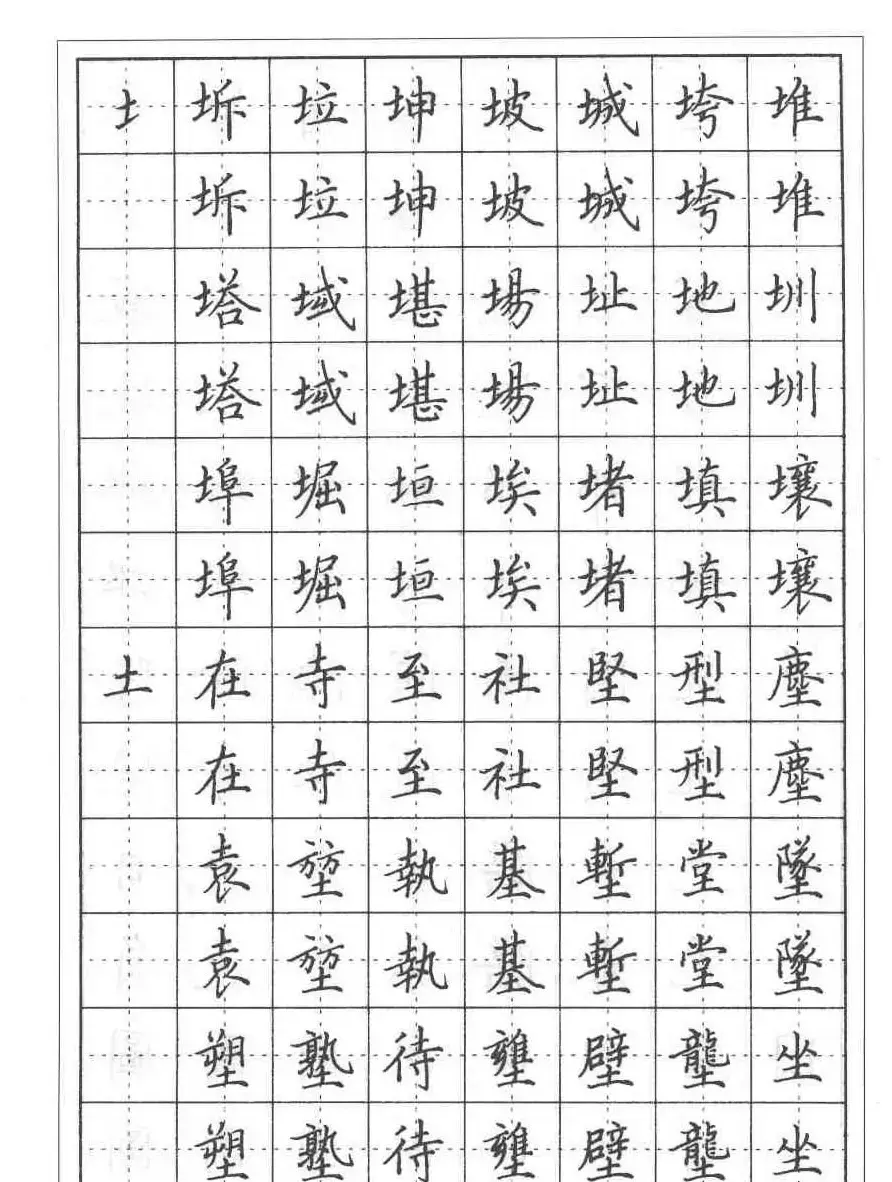 土坼垃坤坡城垮堆
坼垃坤坡城垮堆
塔域堪場址地圳
塔域堪場址地圳
埠堀垣埃堵填壤
埠堀垣埃堵填壤
土在寺至社堅型塵
在寺至社堅型塵
袁堃執基塹堂墜
袁堃執基塹堂墜
塑塾待壅壁壟坐
塑塾待壅壁壟坐